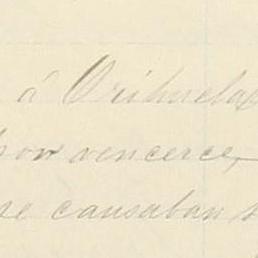 á Orihuela
por vencerce,
se causaban